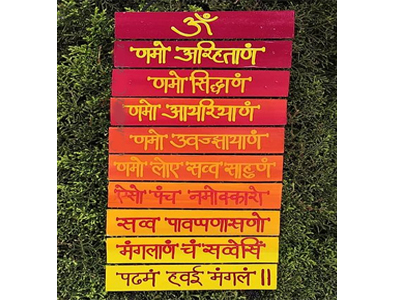 ॐ
णमो अरिहंताणं
णमो सिद्धाणं
णमो आयरियाणं
णमो उवज्झायाणं
णमो लोए सव्व साहुणं
ऐसो पंच नमोक्कारो
सव्व पावप्पणासणो
मंगलाणं च सव्वेसिं
पढमं हवई मंगलं ॥